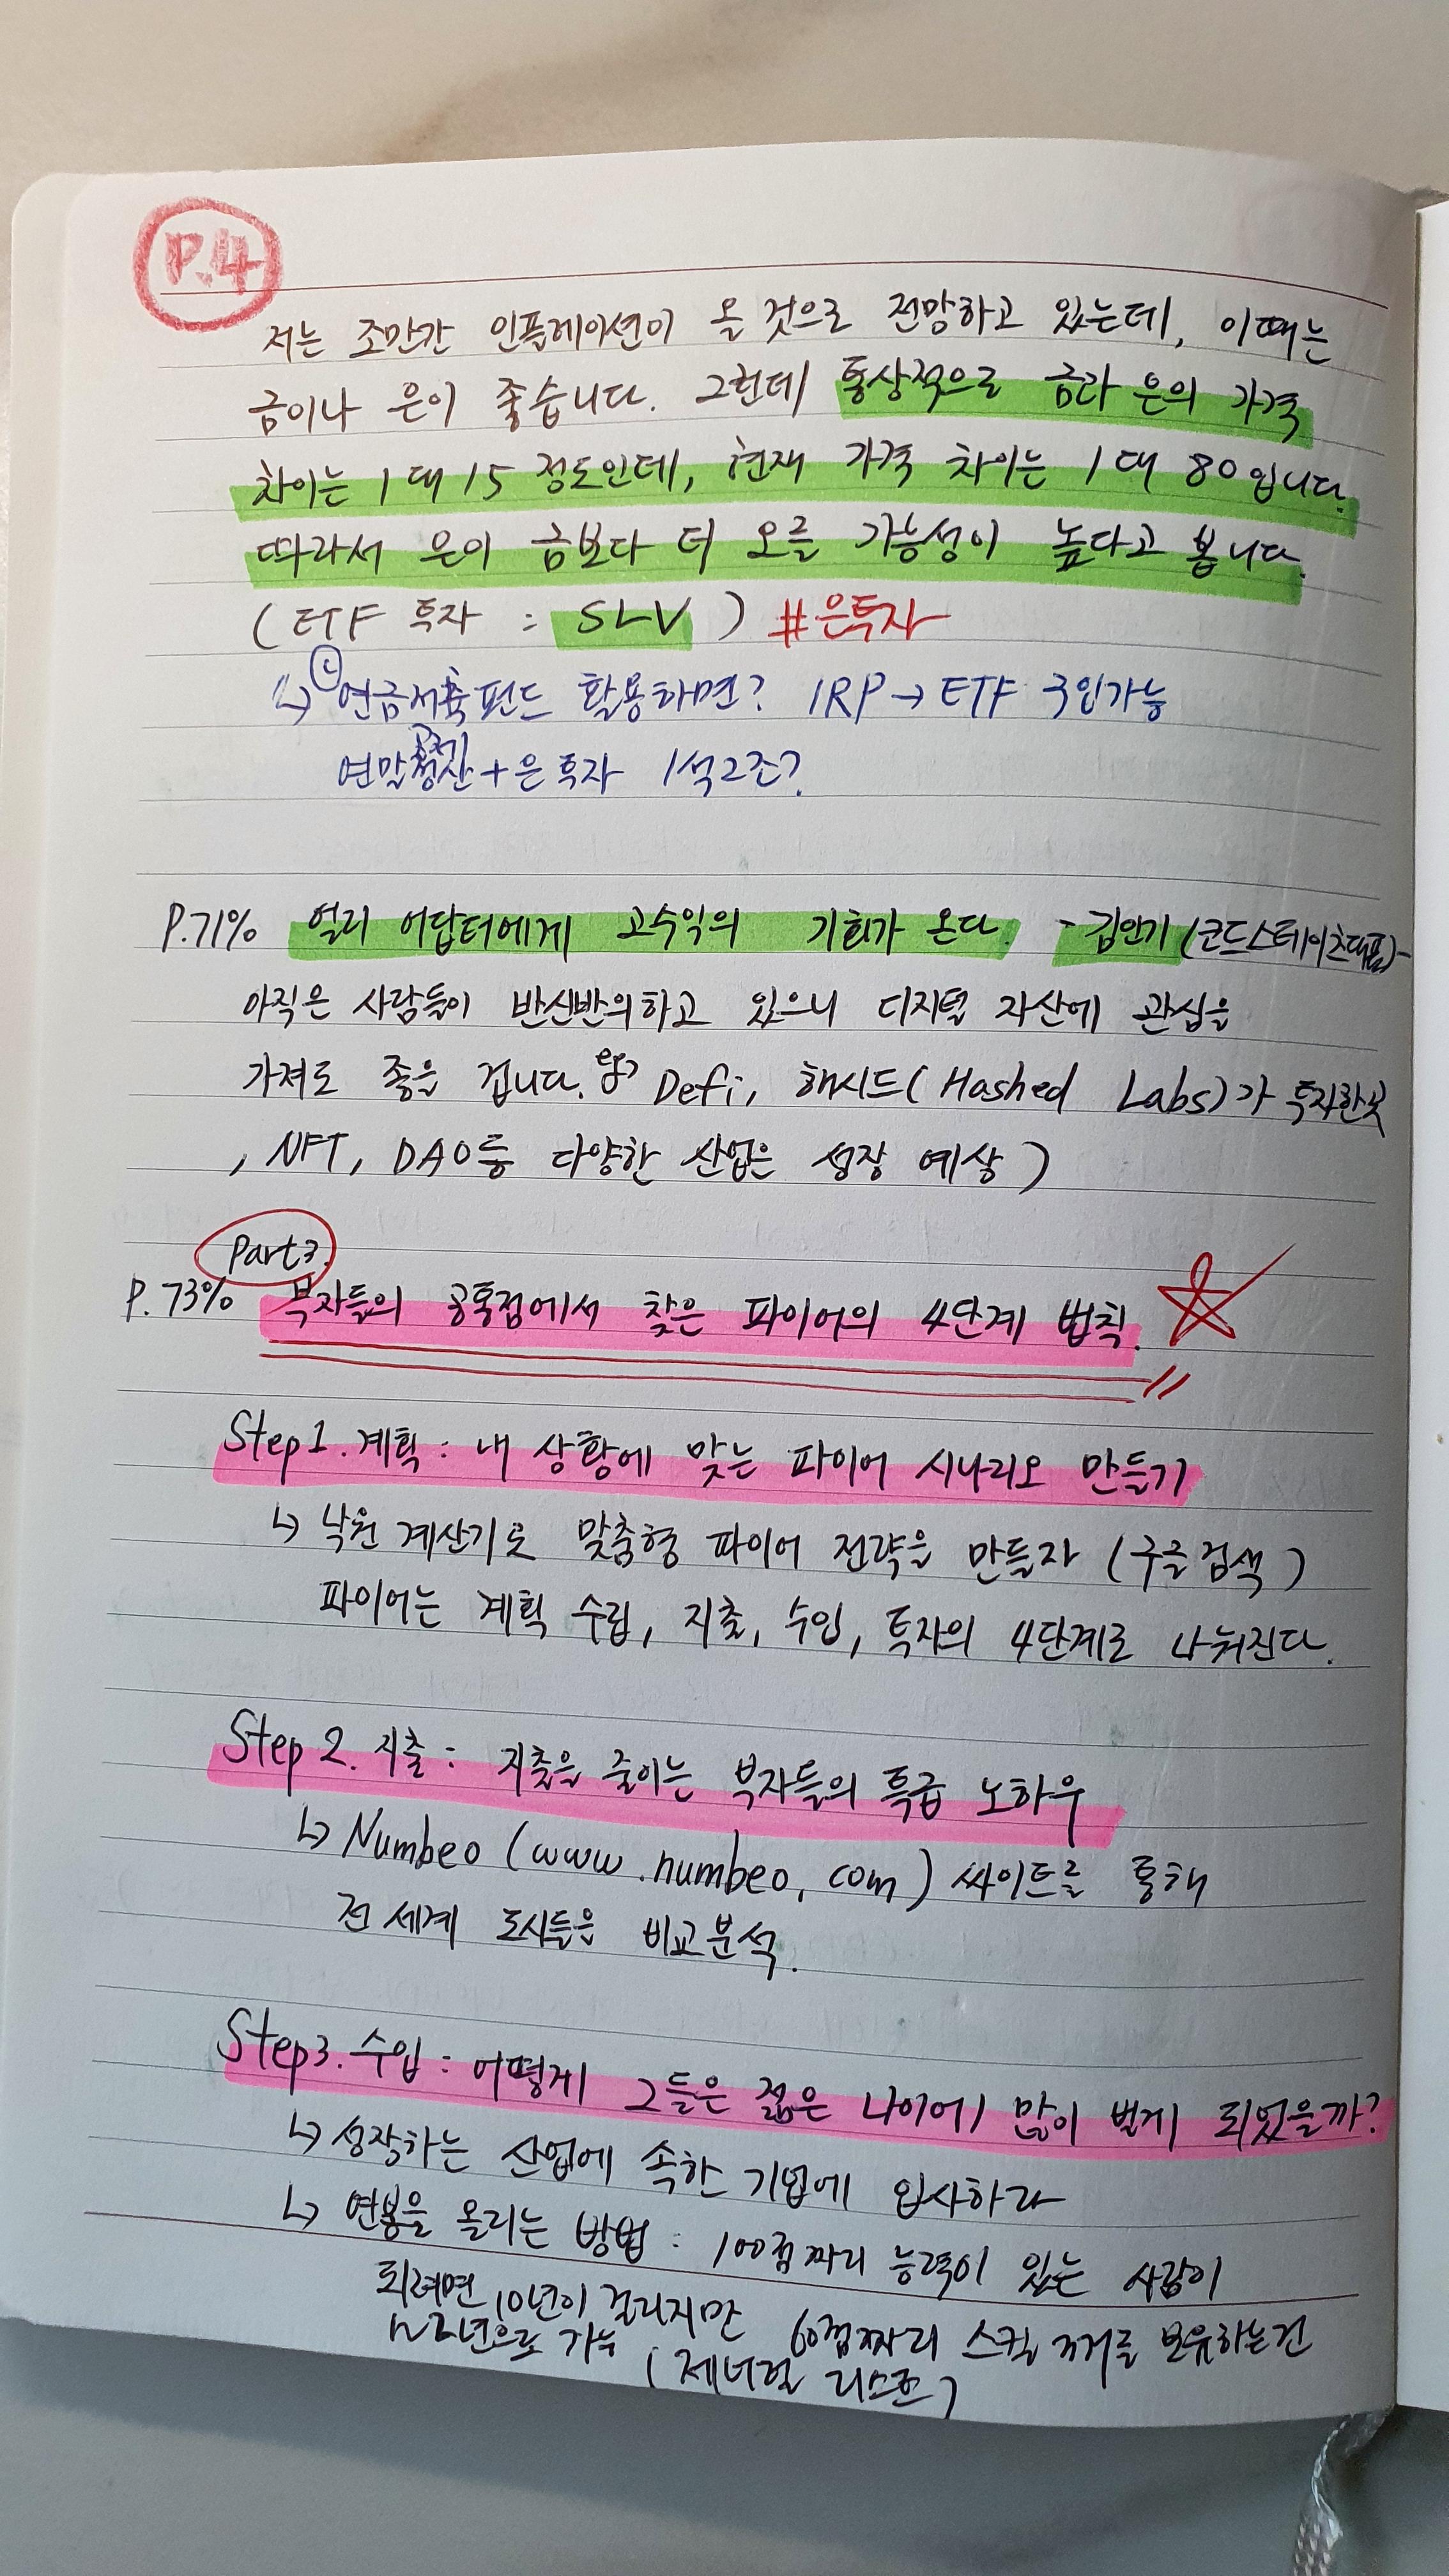 P.4
저는 조만간 인플레이션이 올 것으로 전망하고 있는데, 이때는
금이나 은이 좋습니다. 그런데 통상적으로 금과 은의 가격
차이는 1대 15 정도인데, 현재 가격 차이는 1대 80입니다.
따라서 은이 금보다 더 오를 가능성이 높다고 봅니다.
(ETF 투자 : SLV) #은투자
↳ 연금저축펀드 활용하면? IRP → ETF 구입가능
연말정산 + 은투자 1석2조?
P.71% 얼리 어답터에게 고수익의 기회가 온다. - 김인기 (코드스테이츠대표) -
아직은 사람들이 반신반의하고 있으니 디지털 자산에 관심을
가져도 좋을 겁니다. Defi, 해시드(Hashed Labs)가 투자한곳
, NFT, DAO등 다양한 산업은 성장 예상)
Part3.
P.73% 부자들의 공통점에서 찾은 파이어의 4단계 법칙.
Step1. 계획 : 내 상황에 맞는 파이어 시나리오 만들기
↳ 낙원 계산기로 맞춤형 파이어 전략을 만들자 (구글 검색)
파이어는 계획 수립, 지출, 수입, 투자의 4단계로 나눠진다.
Step 2. 지출 : 지출을 줄이는 부자들의 특급 노하우
↳ Numbeo (www.numbeo.com) 싸이트를 통해
전 세계 도시들을 비교분석.
Step3. 수입 : 어떻게 그들은 젊은 나이에 많이 벌게 되었을까?
↳ 성장하는 산업에 속한 기업에 입사하라
↳ 연봉을 올리는 방법 : 100점짜리 능력이 있는 사람이
되려면 10년이 걸리지만 60점짜리 스킬 여러개를 보유하는건
1~2년으로 가능 (제너럴 리스트)